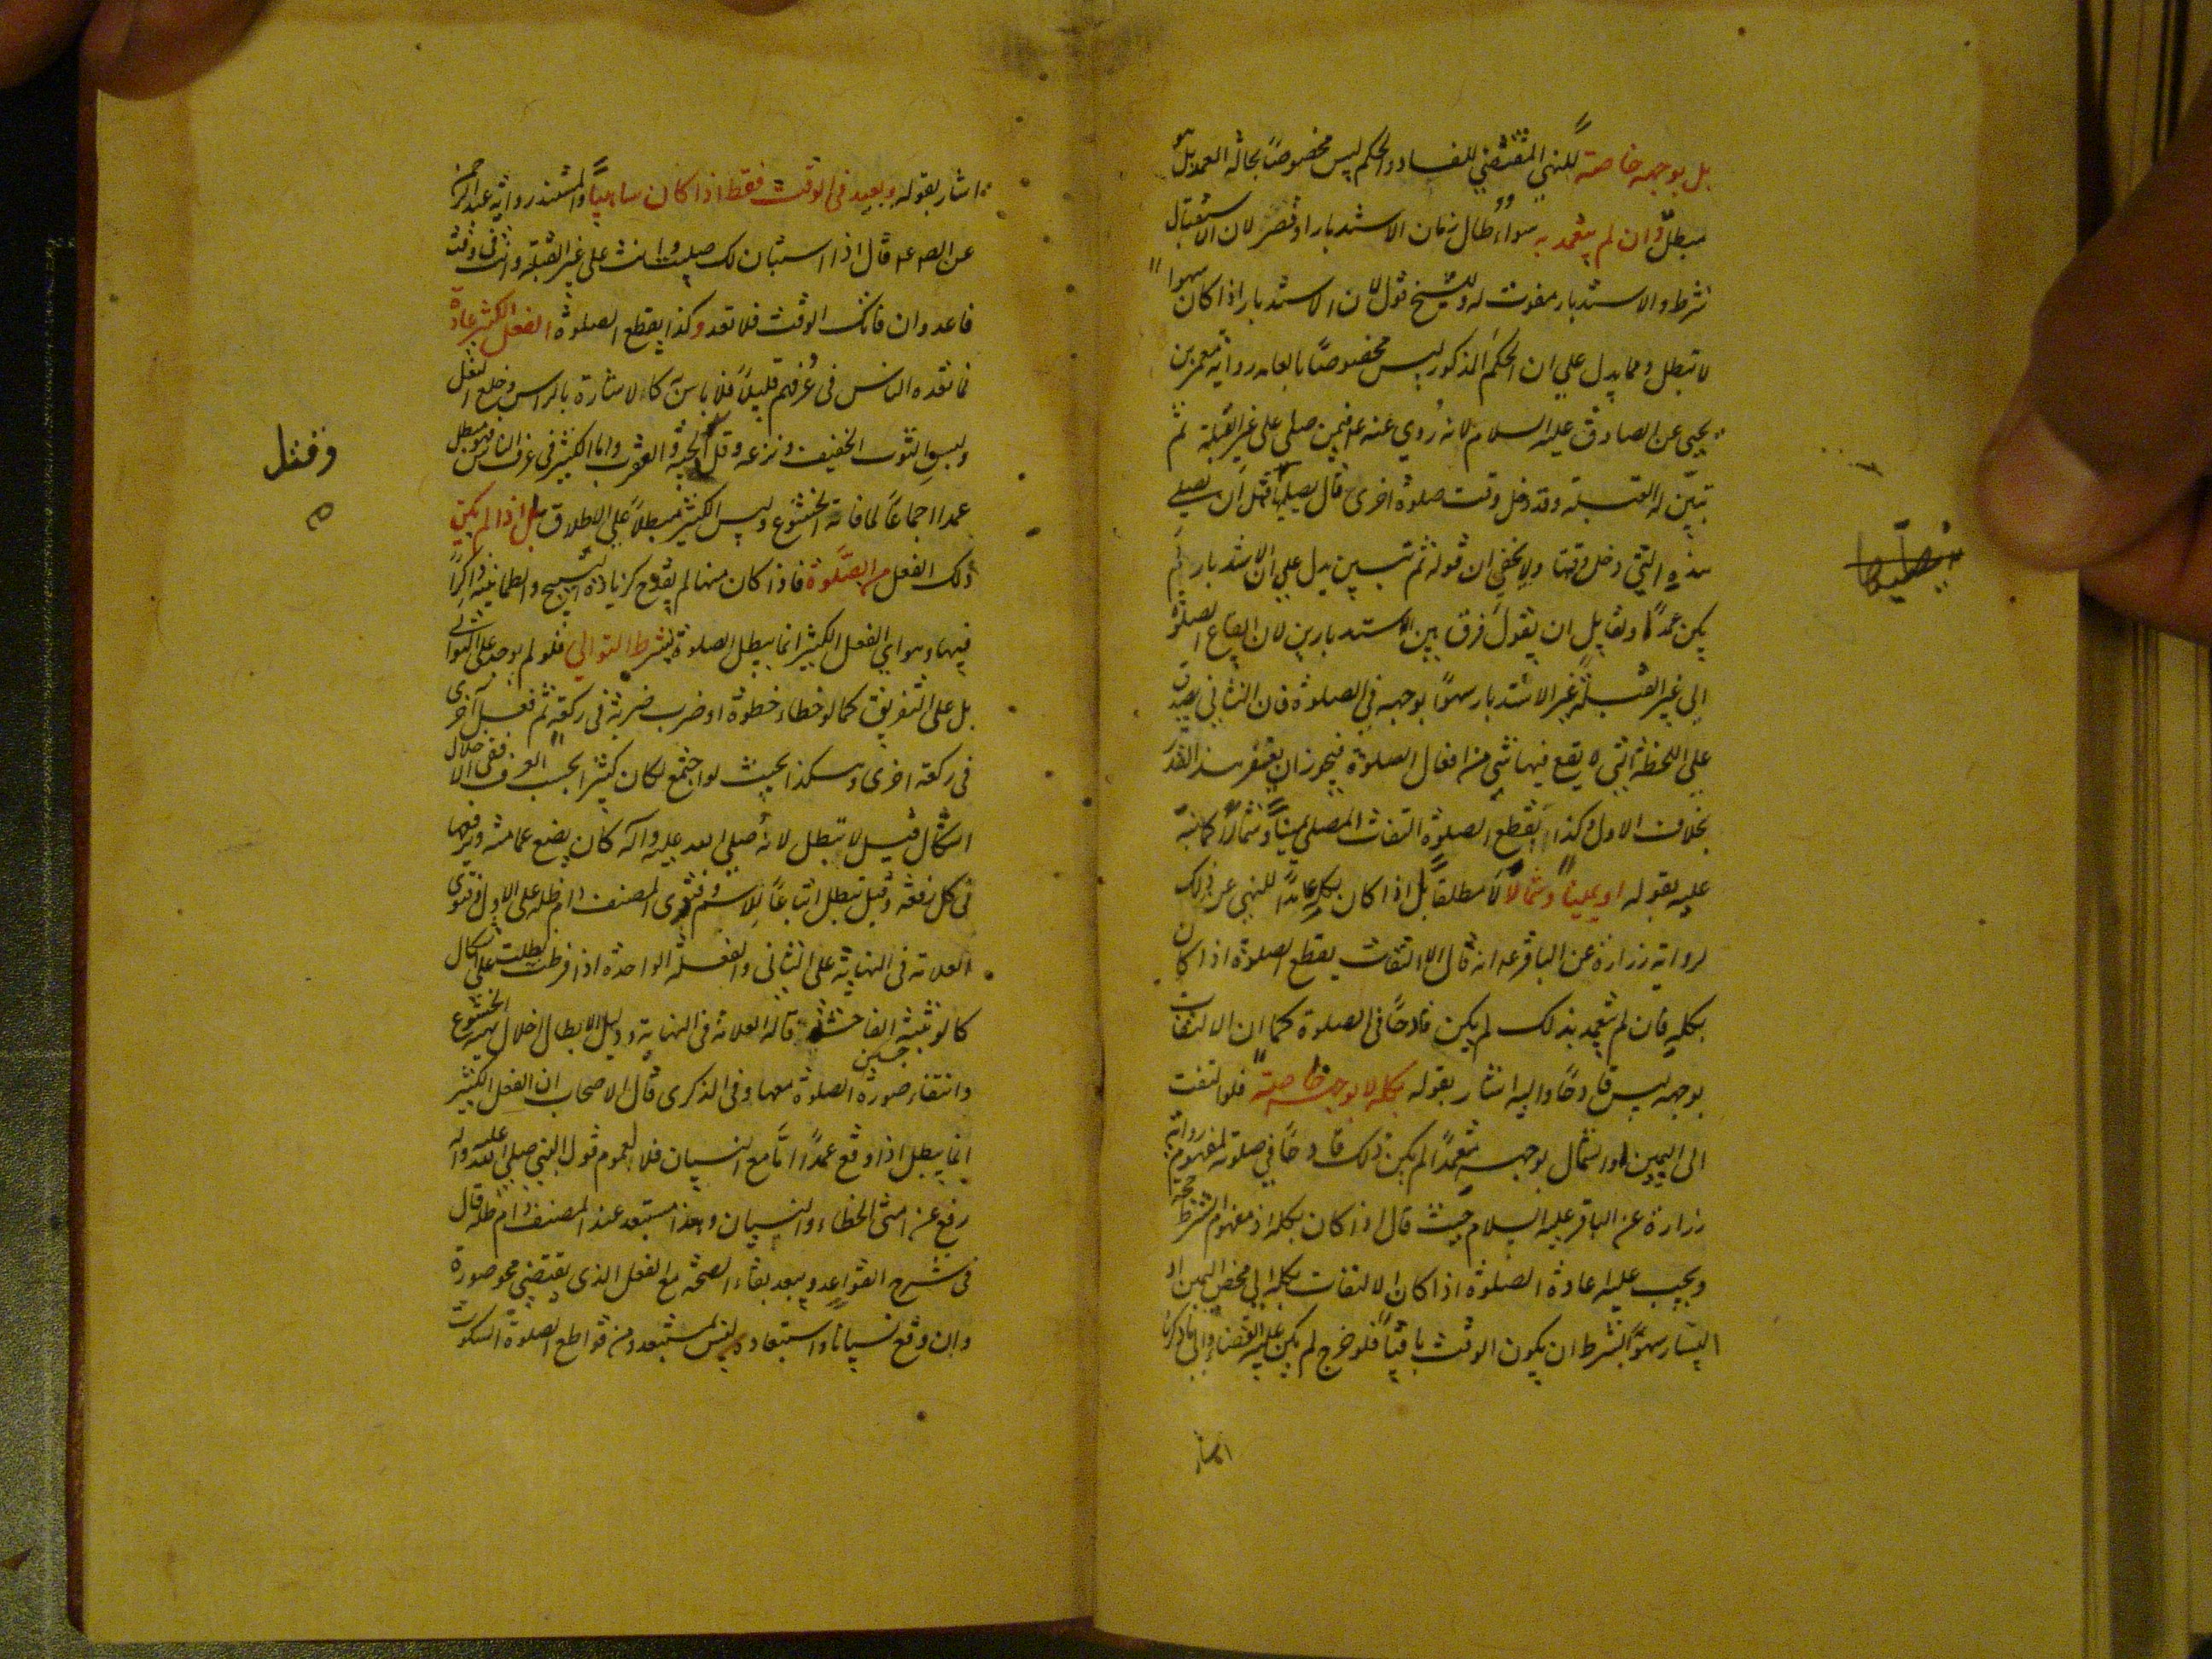 بل بوجهه خاصة للنهي المقتضي للفساد والحكم ليس مخصوصًا بحالة العمد بل هو
مبطل وان لم يتعمد به سواء طال زمان الاستدبار او قصر لان الاستقبال
شرط والاستدبار مفوت له وللشيخ قول لان الاستدبار اذا كان سهوا
لا تبطل ومما يدل علي ان الحكم المذكور ليس مخصوصًا بالعامد رواية معمر بن
يحيى عن الصادق عليه السلام لانه رُوي عنه ع فيمن صلى على غير القبلة ثم
تبيّن له القبلة وقد دخل وقت صلوة اخرى قال يصليها قبل ان يصلي
هذه التي دخل وقتها ولا يخفي ان قوله ثم تبين يدل علي ان الاستدبار لم
يكن عمدًا ولقايل ان يقول فرق بين الاستدبارين لان ايقاع الصلوة
الي غير القبلة غير الاستدبار سهوًا بوجهه في الصلوة فان الثاني يصدق
علي اللحظة التي لا يقع فيها شي من افعال الصلوة فيجوز ان يغتفر هذا القدر
بخلاف الاول وكذا يقطع الصلوة التفات المصلي يمينًا وشمالًا كما نبّه
عليه بقوله او يمينًا وشمالًا لا مطلقًا بل اذا كان بكله عامدًا للنهي عن ذلك
لرواية زرارة عن الباقر ع انه قال الالتفات يقطع الصلوة اذا كان
بكله فان لم يتعمد بذلك لم يكن قادحًا في الصلوة كما ان الالتفات
بوجهه ليس قادحًا واليه اشار بقوله بكله لا بوجهه خاصة فلو التفت
الى اليمين او الشمال بوجهه متعمدًا لم يكن ذلك قادحًا في صلوته لمفهوم رواية
زرارة عن الباقر عليه السلام حيث قال اذا كان بكله اذ مفهوم الشرط حجة
ويجب عليه اعادة الصلوة اذا كان الالتفات بكله الي محض اليمين او
اليسار سهوًا بشرط ان يكون الوقت باقيًا فلو خرج لم يكن عليه القضاء والي ما ذكرنا
اشار
اشار بقوله ويعيد في الوقت فقط اذا كان ساهيًا والمستند رواية عبد الرحمن
عن الص ع قال اذا استبان لك صليت وانت على غير القبلة وانت في وقت
فاعد وان فاتك الوقت فلا تعد وكذا يقطع الصلوة الفعل الكثير عادة
فما تعده الناس في عُرفهم قليلًا فلا باس به كالاشارة بالراس وخلع النعل
ولبس الثوب الخفيف ونزعه وقتل الحية والعقرب واما الكثير في عرف الناس فهو مبطل
عمدا اجماعًا لمنافاته الخشوع وليس الكثير مبطلًا علي الاطلاق بل اذا لم يكن
ذلك الفعل من الصلوة فاذا كان منها لم يقدح كزيادة التسبيح والطمانينة ذاكرًا
فيها وهو اي الفعل الكثير انما يبطل الصلوة بشرط التوالي فلو لم يوجد على التوالي
بل على التفريق كما لو خطاء خطوة او ضرب ضربة في ركعة ثم فعل آخرى
في ركعة اخرى وهكذا بحيث لو اجتمع لكان كثيرا بحسب العرف ففي الابطال
اشكال قيل لا تبطل لانه صلى الله عليه وآله كان يضع عمامته ويرفعها
في كل رفعة وقيل تبطل اتباعًا للاسم وفتوى المصنف دام ظله على الاول وفتوى
العلامة في النهاية على الثاني والفعلة الواحدة اذا فرطت بطلت على اشكال
كالوثبة الفاحشة قاله العلامة في النهاية ودليل الابطال اخلال هيئة الخشوع
وانتفاء صورة الصلوة معها وفي الذكرى قال الاصحاب ان الفعل الكثير
انما يبطل اذا وقع عمدًا اما مع النسيان فلا لعموم قول النبي صلى الله عليه وآله
رفع عن امتي الخطاء والنسيان وهذا مستبعد عند المصنف دام ظله قال
في شرح القواعد ويبعد بقاء الصحة مع الفعل الذي يقتضي محو صورة
وان وقع نسيانًا واستبعاده ليس بمستبعد ومن قواطع الصلوة السكوت
وقتل